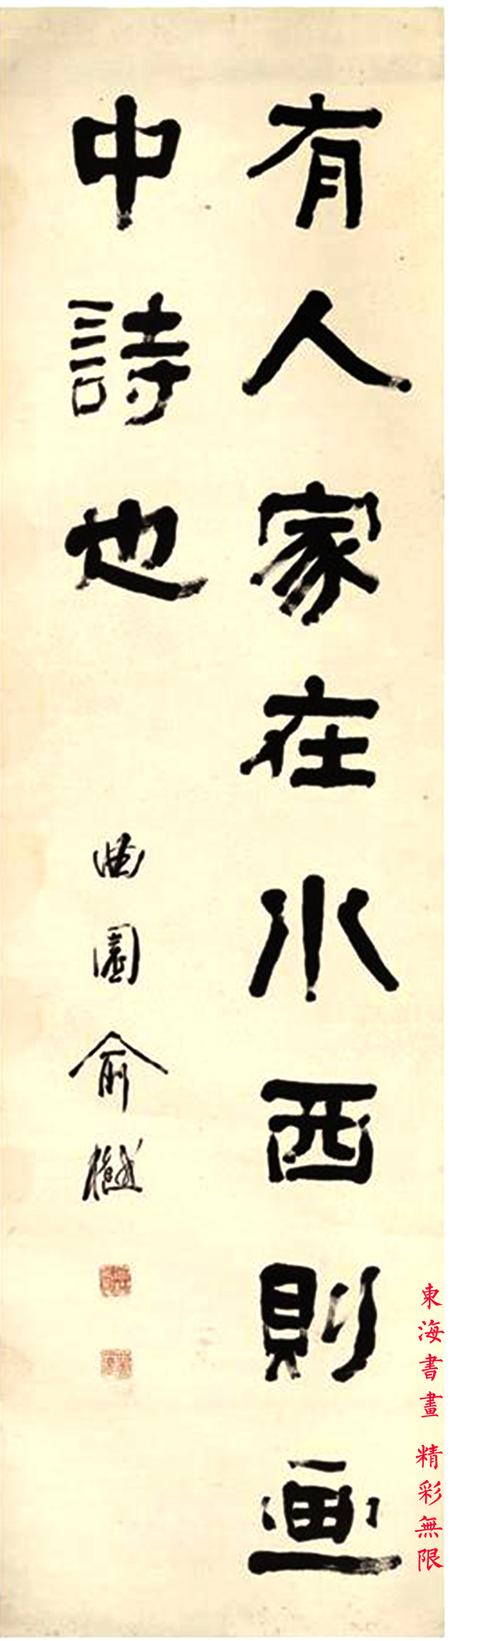 有人家在水西則画
中詩也
曲園俞樾
東海書畫 精彩無限